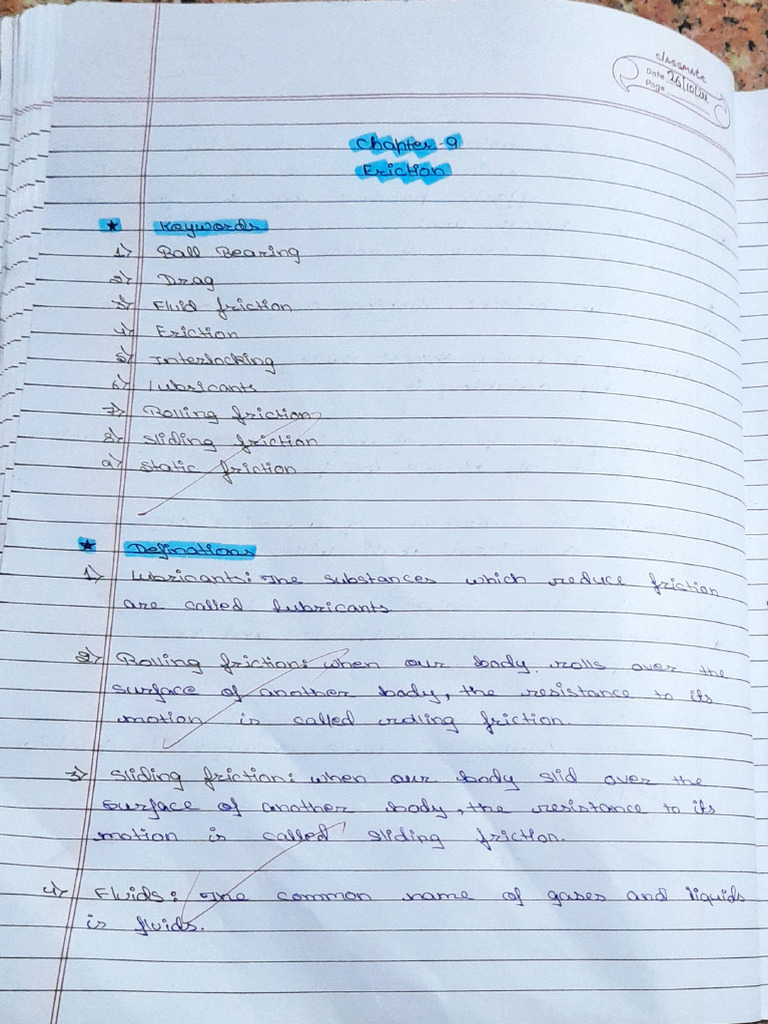 classmate
Date 26/10/21
Page
Chapter-9
Friction
★ Keywords
1) Ball Bearing
2) Drag
3) Fluid friction
4) Friction
5) Interlocking
6) Lubricants
7) Rolling friction
8) Sliding friction
9) Static friction
★ Definations
1) Lubricants: The substances which reduce friction
are called lubricants
2) Rolling friction: When our body rolls over the
surface of another body, the resistance to its
motion is called rolling friction.
3) Sliding friction: When our body slid over the
surface of another body, the resistance to its
motion is called sliding friction.
4) Fluids: The common name of gases and liquids
is fluids.